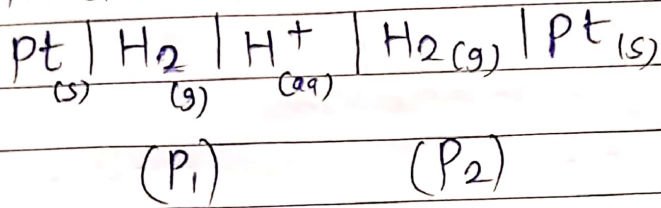 Pt(s) | H2(g) | H+(aq) | H2(g) | Pt(s)
(P1) (P2)